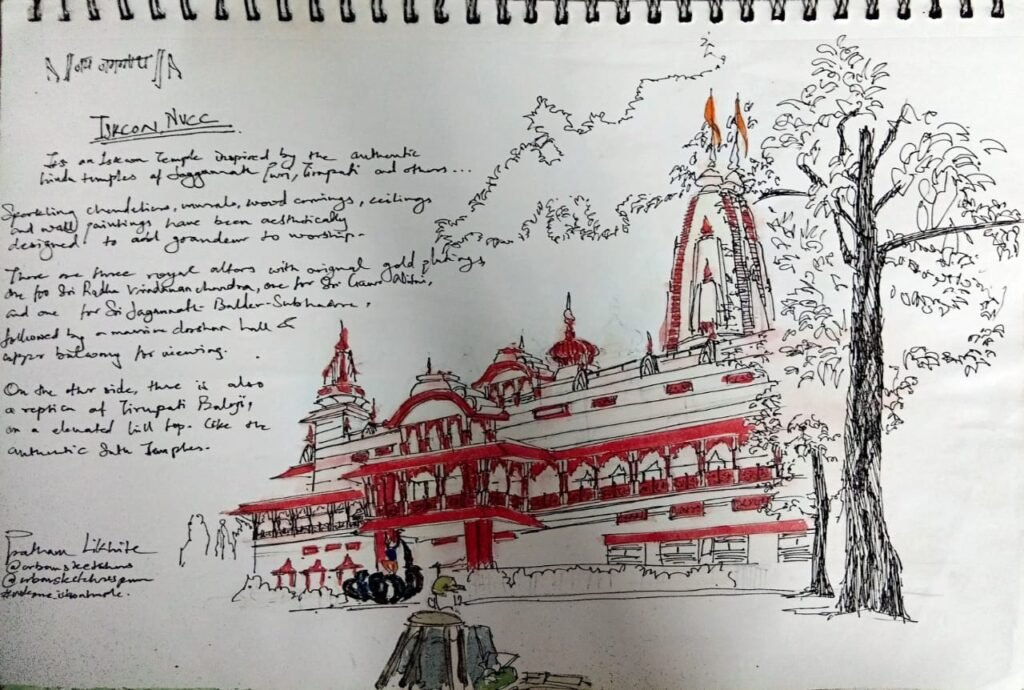 ॥ जय जगन्नाथ ॥
ISKCON, NVCC
Is an Iskcon Temple inspired by the authentic
hindu temples of Jaggannath Puri, Tirupati and others...
Sparkling chandeliers, murals, wood carvings, ceilings
and wall paintings have been aesthetically
designed to add grandeur to worship.
There are three royal altars with original gold platings,
one for Sri Radha Vrindavanchandra, one for Sri Gaura Nitai,
and one for Sri Jagannath Baldev-Subhadra,
followed by a massive darshan hall &
upper balcony for viewing.
On the other side, there is also
a replica of Tirupati Balaji,
on a elevated hill top. Like the
authentic Temples.
Pratham Likhite
@urbansketchers
@urbansketcherspune